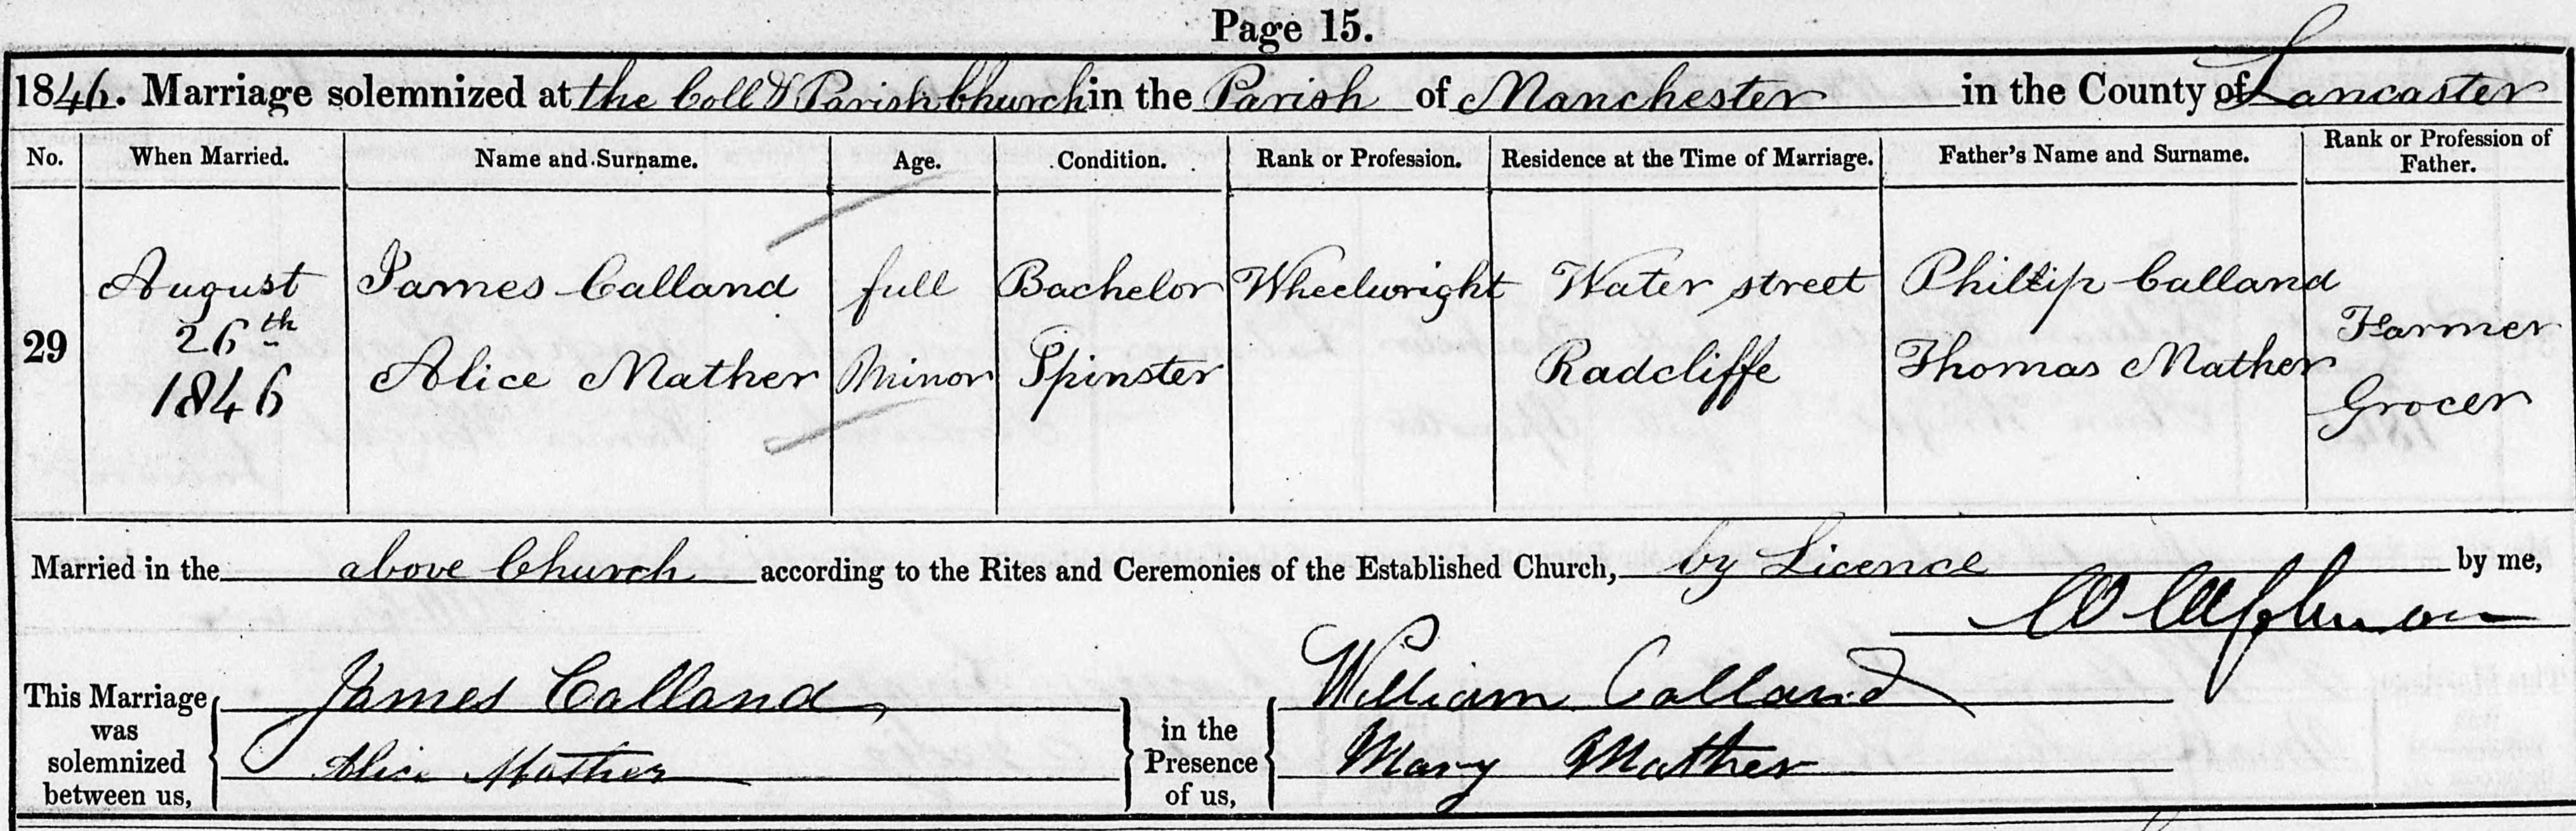 Page 15.
1846. Marriage solemnized at the Coll & Parish Church in the Parish of Manchester in the County of Lancaster
No. When Married. Name and Surname. Age. Condition. Rank or Profession. Residence at the Time of Marriage. Father's Name and Surname. Rank or Profession of Father.
August James Calland full Bachelor Wheelwright Water street Phillip Calland
29 26th Farmer
1846 Alice Mather Minor Spinster Radcliffe Thomas Mather
Grocer
Married in the above Church according to the Rites and Ceremonies of the Established Church, by Licence by me,
W
This Marriage was solemnized between us, James Calland in the Presence of us, William Calland
Alice Mather Mary Mather